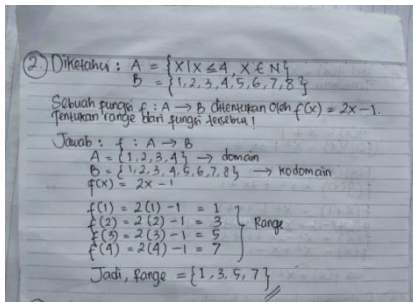 ② Diketahui : A = {x | x ≤ 4, x ∈ N}
B = {1,2,3,4,5,6,7,8}
Sebuah fungsi f : A → B ditentukan oleh f(x) = 2x - 1.
Tentukan range dari fungsi tersebut !
Jawab : f : A → B
A = {1,2,3,4} → domain
B = {1,2,3,4,5,6,7,8} → kodomain
f(x) = 2x - 1
f(1) = 2(1) - 1 = 1
f(2) = 2(2) - 1 = 3
f(3) = 2(3) - 1 = 5 } Range
f(4) = 2(4) - 1 = 7
Jadi, Range = {1, 3, 5, 7} //